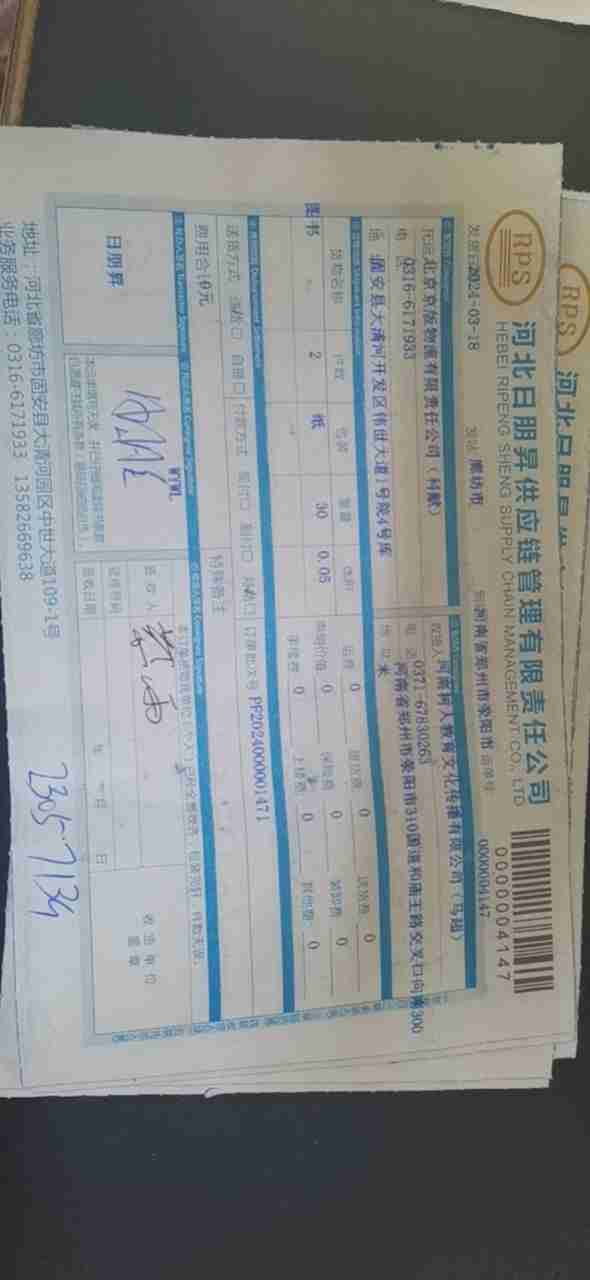 RPS
河北日朋昇供应链管理有限责任公司
HEBEI RIPENG SHENG SUPPLY CHAIN MANAGEMENT CO., LTD
0000004147
发货日2024-03-18 发站 廊坊市 到河南省郑州市荥阳市 运单号 0000004147
托运北京京版物流有限责任公司(村赋)
电 0316-6171933
固安县大清河开发区伟世大道1号院4号库
收货人河南树人教育文化传播有限公司(马超)
电 话 0371-67830263
河南省郑州市荥阳市310国道和庙王路交叉口向南300
米
货物名称 件数 包装 重量 体积
图书 2 纸 30 0.05
运费 0 提货费 0 送货费 0
声明价值 0 保险费 0 装卸费 0
手续费 0 上楼费 0 其他费: 0
送货方式 送货口 自提口 付款方式 现付口 到付口 月结口 订单批次号 PF2024000001471
费用合计0元
特殊备注
日朋昇
WYWL
本订单货物我单位(个人)已经全部收讫,包装完好,件数无误。
签 收 人
证件号码
签收日期 年 日 日
收 货 单 位
盖 章
地址:河北省廊坊市固安县大清河园区中世大道109-1号
业务服务电话:0316-6171933 13582669638
23057134
RPS